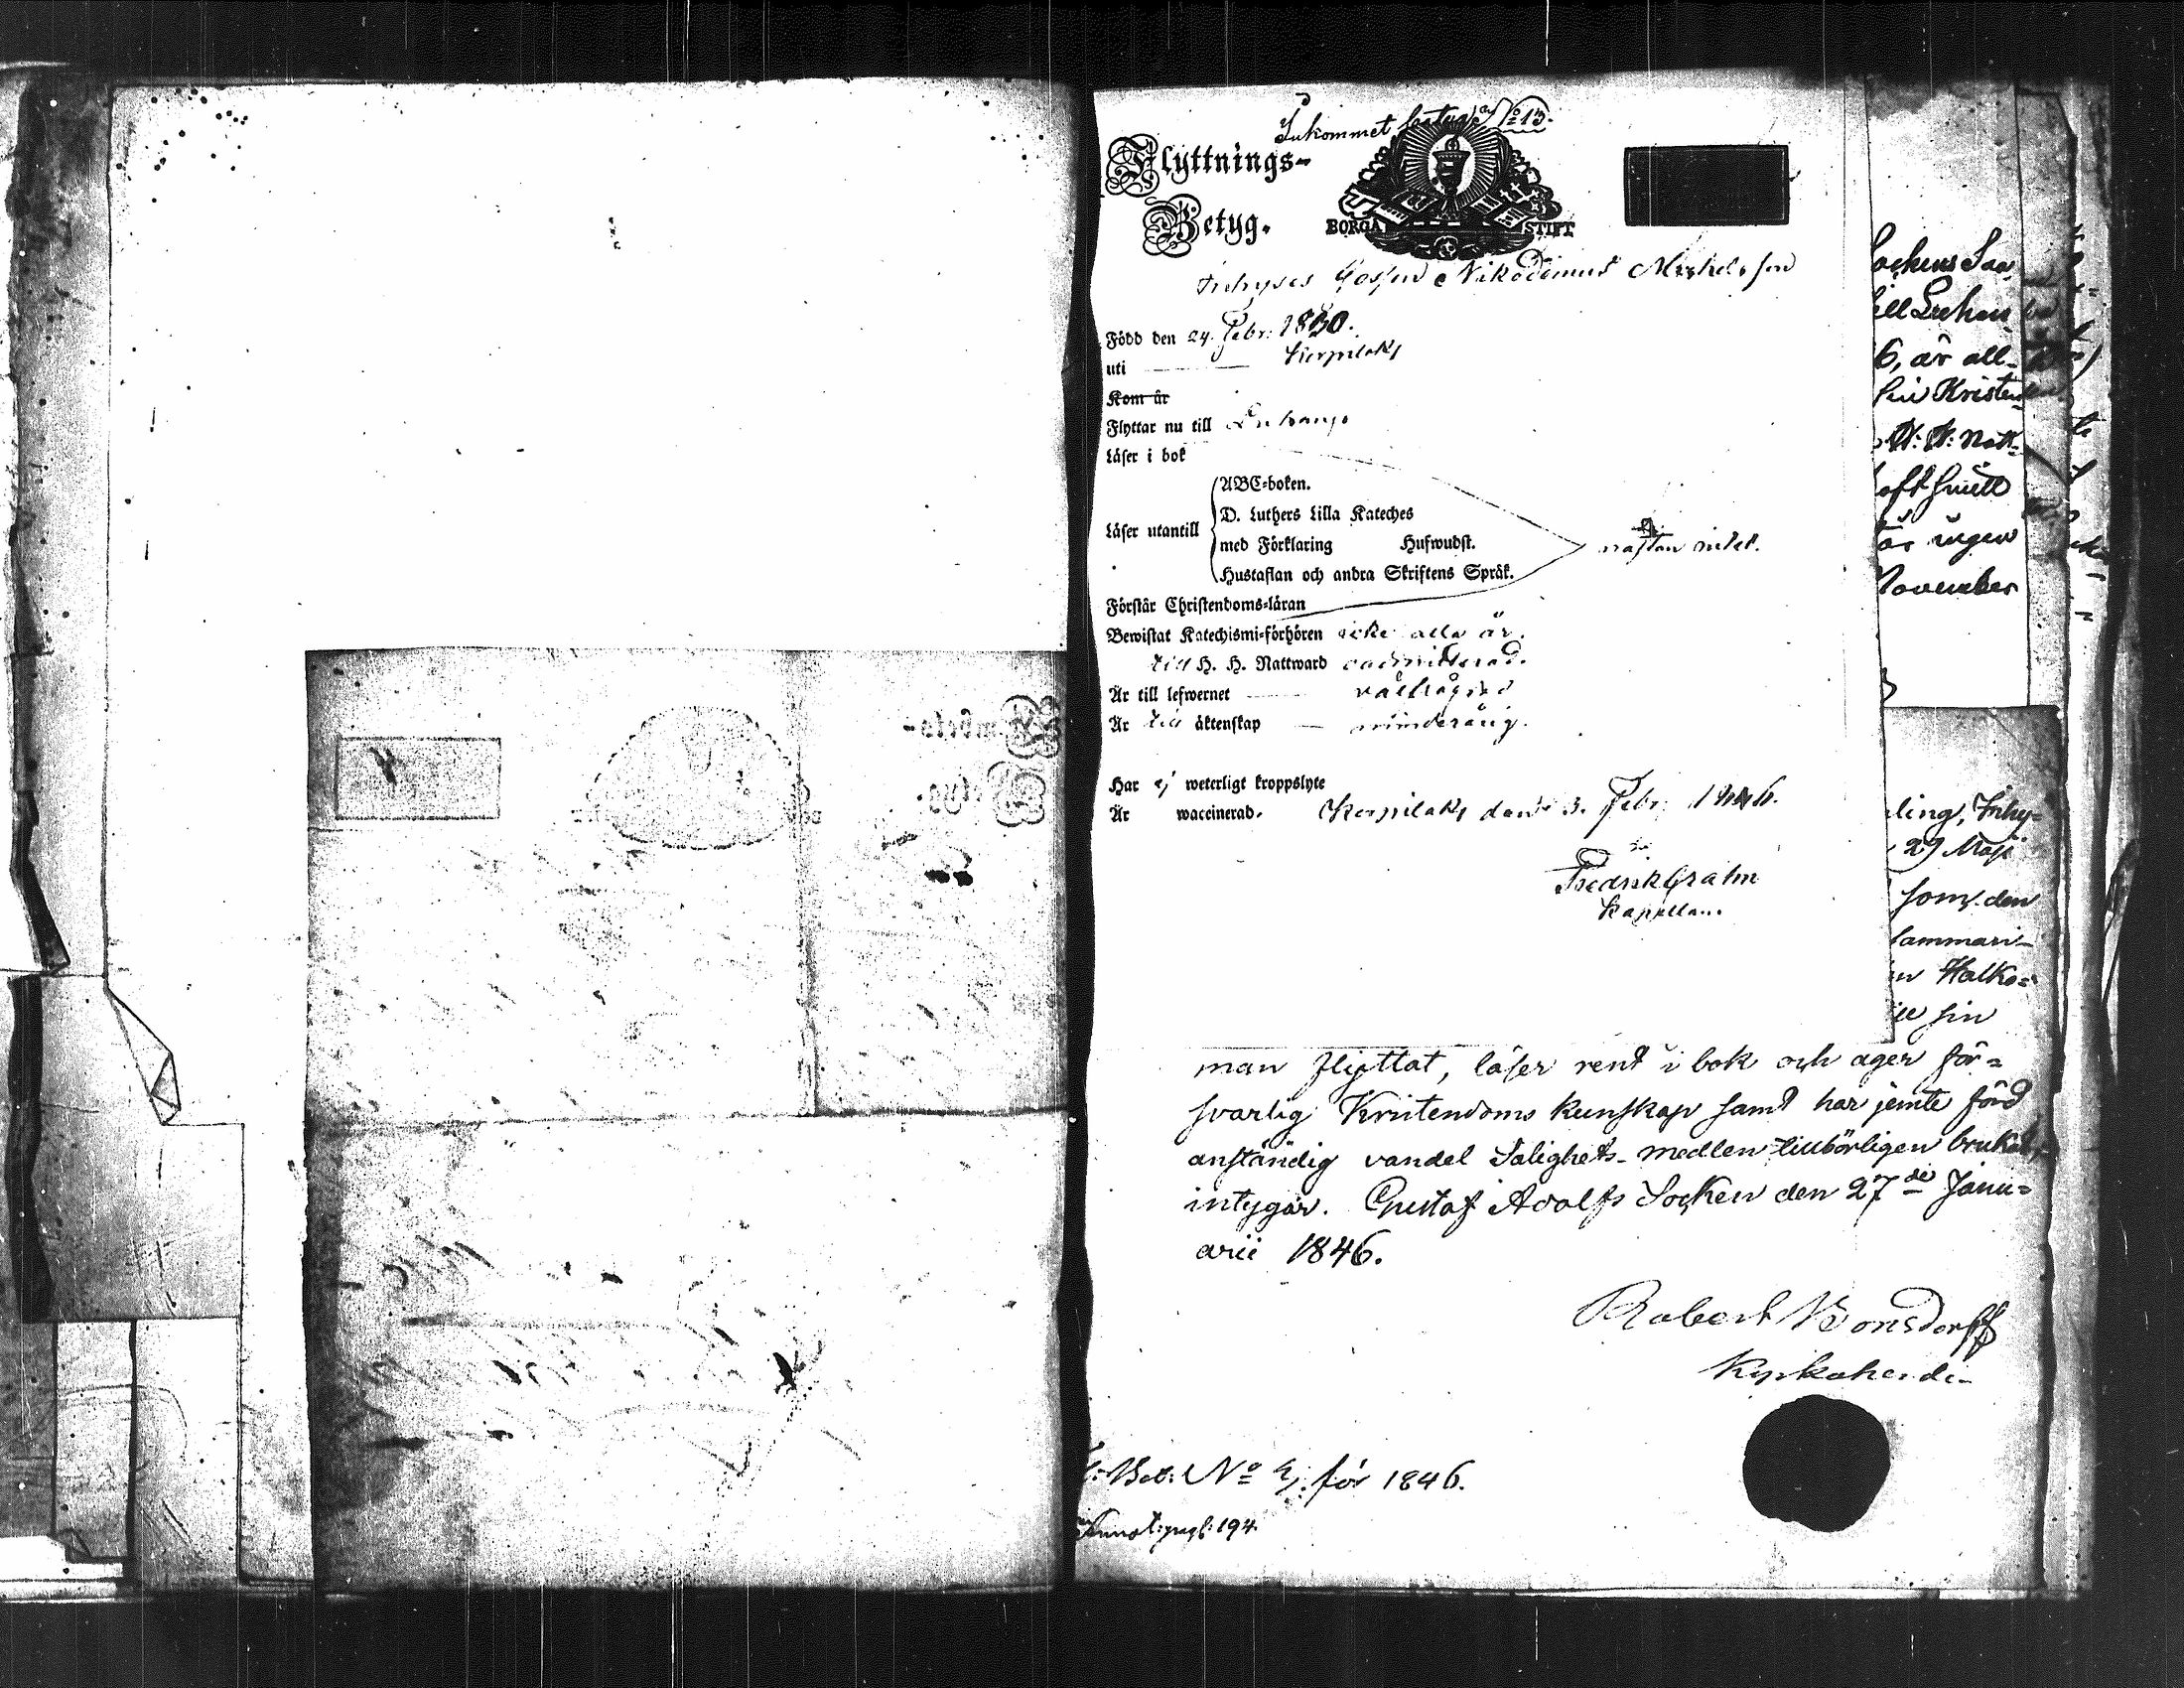 Inkommet betyg No 13.
Flyttnings-
Betyg.
BORGÅ STIFT
Inhyses Gossen Nikodemus Michelsson
Född den 24 Febr: 1830.
uti Kerpilaks
Kom år
Flyttar nu till
Läser i bok
Läser utantill
ABC-boken.
D. Luthers Lilla Kateches
med Förklaring Hufwudst.
Hustaflan och andra Skriftens Språk.
nästan intet.
Förstår Christendoms-läran
Bewistat Katechismi-förhören icke alla år.
till H. H. Nattward oadmitterad.
Är till lefwernet välfrägdad
Är till äktenskap minderårig.
Har ej weterligt kroppslyte
Är waccinerad.
Kerpilaks den 3. Febr: 1846.
Fredrik Grahn
Kapellan.
ockens
6, är all-
sin Kristen
H. H. Natt-
ingen
November
ling, Inhy-
27 Maji
som den
Halko-
sin
man flyttat, läser rent i bok och äger för-
svarlig Kristendoms kunskap samt har jemte förd
anständig vandel Salighets-medlen tillbörligen brukat,
intygar. Gustaf Adolfs Socken den 27de Janu-
arii 1846.
Robert Bonsdorff
Kyrkoherde
Bet: No för 1846.
194.